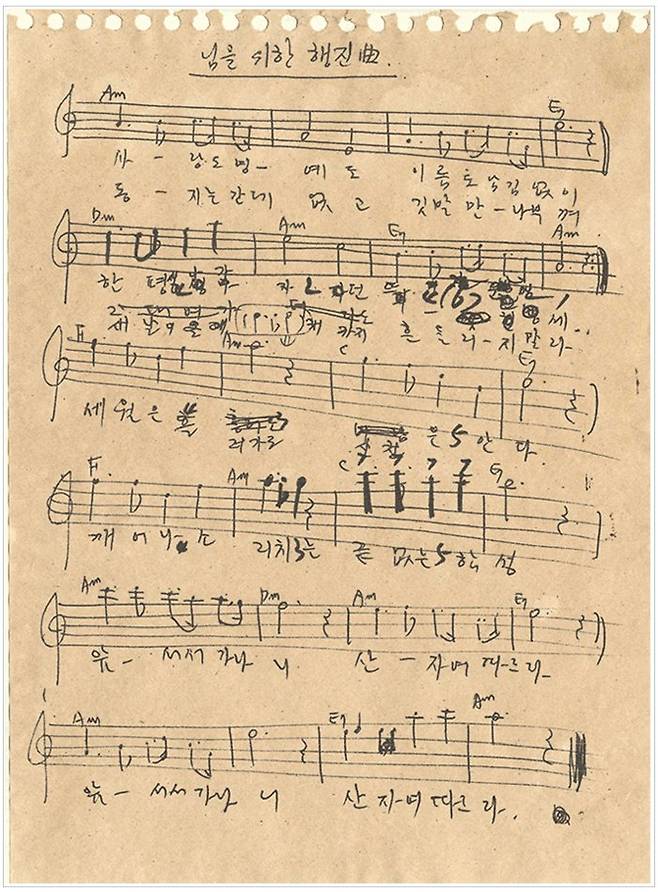 님을 위한 행진曲.
Am E7
사 - 랑도 명 - 예도 이름도 남김 없이
동 - 지는 간데 없고 깃발만 - 나부껴
Dm Am E7 Am
한 평생 나가 - 자
세.
새 날이 올 때 까지 흔들리 - 지 말라 -
F Am C E7
세월은 흘
러가도 산천 은 안다.
F. Am C E7
깨어나 소 리치는 끝 없는 함성
Am Dm Am E7
앞 - 서서 가나니 산 - 자여 따르라 -
Am E7 Am
앞 - 서서 가나니 산 자여 따르라.